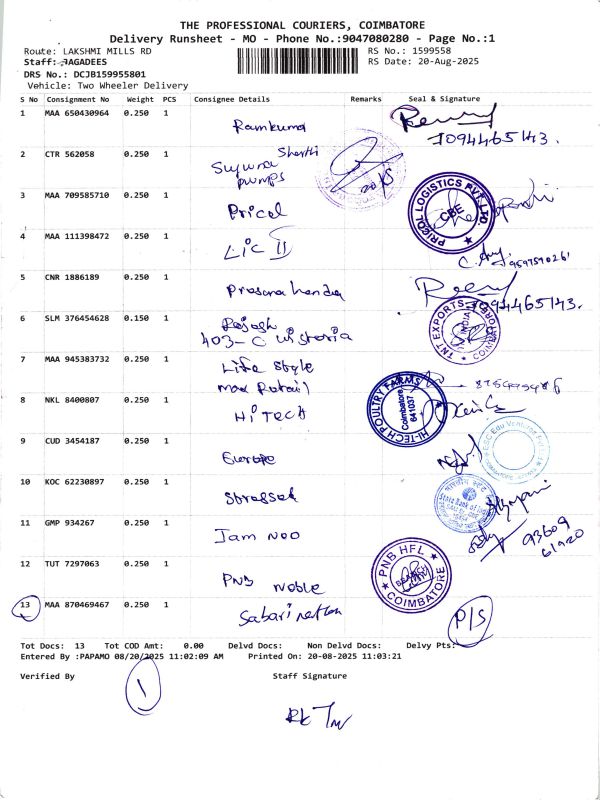 THE PROFESSIONAL COURIERS, COIMBATORE
Delivery Runsheet - MO - Phone No.:9047080280 - Page No.:1
Route: LAKSHMI MILLS RD
RS No.: 1599558
Staff: JAGADEES
RS Date: 20-Aug-2025
DRS No.: DCJB159955801
Vehicle: Two Wheeler Delivery
S No Consignment No Weight PCS Consignee Details Remarks Seal & Signature
1 MAA 650430964 0.250 1 Ramkuma
7094465143.
2 CTR 562058 0.250 1 Suguna Shanthi
pumps
3 MAA 709585710 0.250 1 Pricol
PRICOL LOGISTICS PVT. LTD.
CBE
4 MAA 111398472 0.250 1 LIC II
9597590261
5 CNR 1886189 0.250 1
7094465143.
6 SLM 376454628 0.150 1 Rajesh
403-C
TNT EXPORTS
INDIA
7 MAA 945383732 0.250 1 Life Style
max Retail
8 NKL 8400807 0.250 1 Hi TECH
HI-TECH POULTRY FARMS
Coimbatore
641037
9 CUD 3454187 0.250 1 Europe
10 KOC 62230897 0.250 1
State Bank of India
11 GMP 934267 0.250 1 Jam Noo
93609
61920
12 TUT 7297063 0.250 1 PNB Noble
PNB HFL
BRANCH
COIMBATORE
13 MAA 870469467 0.250 1 Sabari
P/S
Tot Docs: 13 Tot COD Amt: 0.00 Delvd Docs: Non Delvd Docs: Delvy Pts:
Entered By :PAPAMO 08/20/2025 11:02:09 AM Printed On: 20-08-2025 11:03:21
Verified By Staff Signature
1